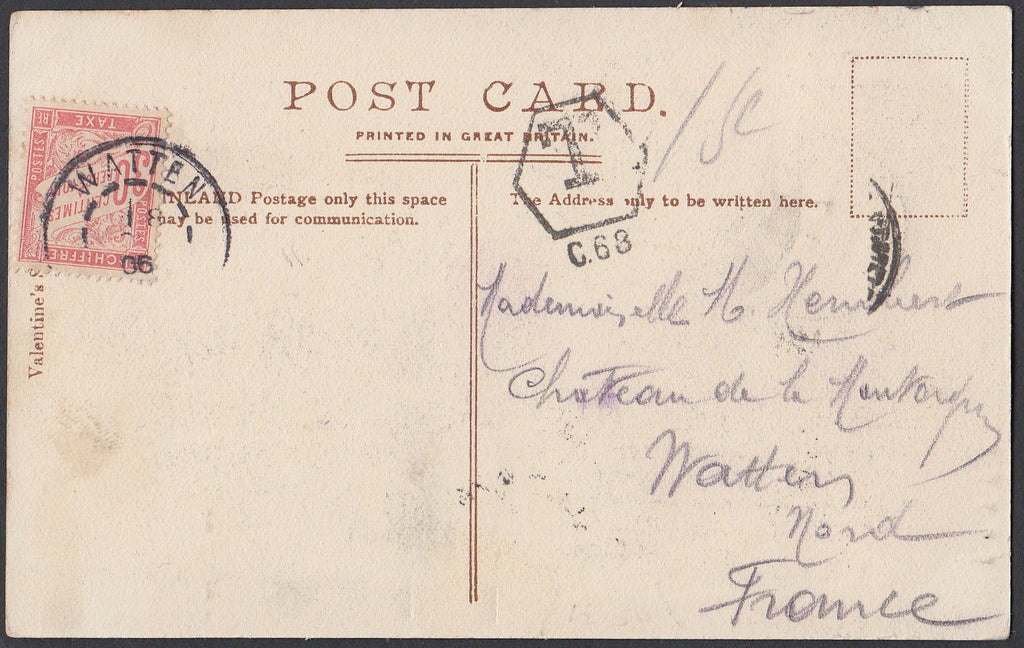 POST CARD.
PRINTED IN GREAT BRITAIN.
INLAND Postage only this space
may be used for communication.
The Address only to be written here.
T
C.68
POSTES RF
TAXE
30
CENTIMES
POSTES
CHIFFRE
WATTEN
06
Valentine's S
Mademoiselle M.
Chateau de la
Watten
Nord
France